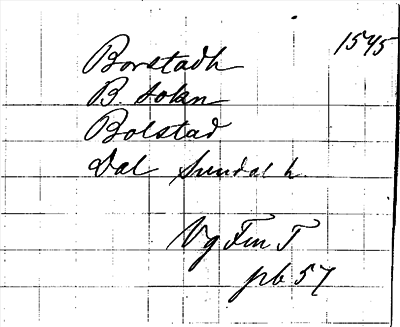 1545
Borstadh
B. sokn
Bolstad
Dal Sundal h
Vg Fm T
pb 57